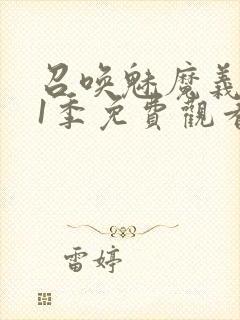 召喚魅魔義
1季免費觀看
雷婷